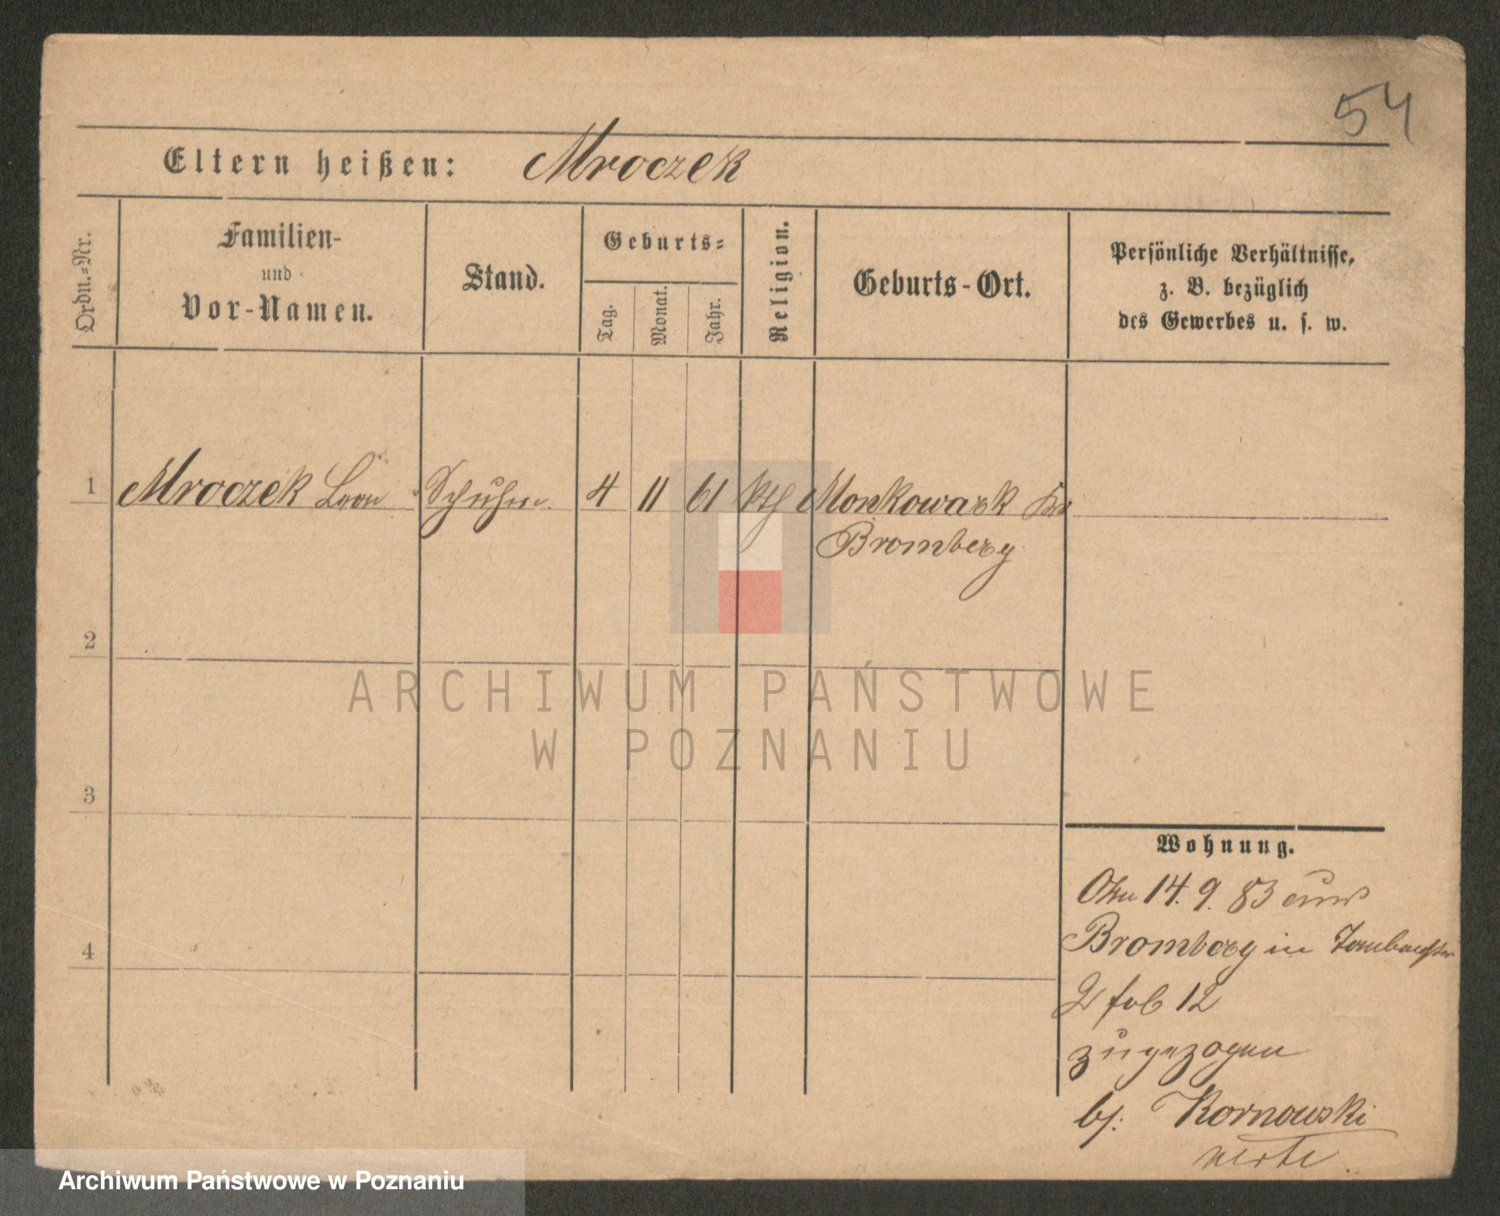 54
Eltern heißen: Mroczek
Ordn.-Nr.
Familien-
und
Vor-Namen.
Stand.
Geburts-
Tag.
Monat.
Jahr.
Religion.
Geburts-Ort.
Persönliche Verhältnisse,
z. B. bezüglich
des Gewerbes u. s. w.
1 Mroczek Leon Schuhm. 4 11 61 kth Monkowarsk Kr
Bromberg
2
ARCHIWUM PAŃSTWOWE
W POZNANIU
3
Wohnung.
14. 9. 83 aus
4
Bromberg in
2 12
zugezogen
bj: Kornowski
verte.
Archiwum Państwowe w Poznaniu